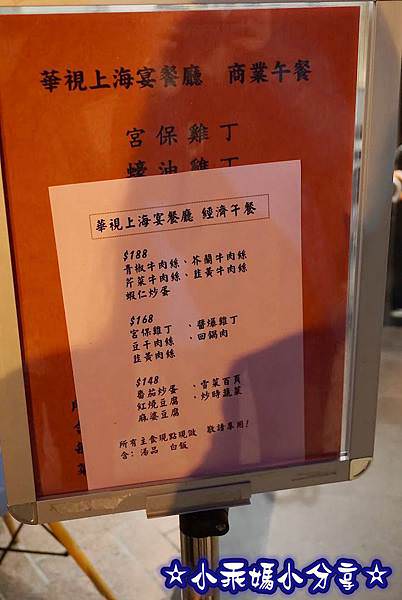 華視上海宴餐廳 商業午餐
宮保雞丁
蠔油雞丁
華視上海宴餐廳 經濟午餐
$188
青椒牛肉絲、芥蘭牛肉絲
芹菜牛肉絲、韭黃牛肉絲
蝦仁炒蛋
$168
宮保雞丁 、醬爆雞丁
豆干肉絲 、回鍋肉
韭黃肉絲
$148
番茄炒蛋 、雪菜百頁
紅燒豆腐 、炒時蔬菜
麻婆豆腐
所有主食現點現做 敬請專用!
含:湯品 白飯
☆小乖媽小分享☆